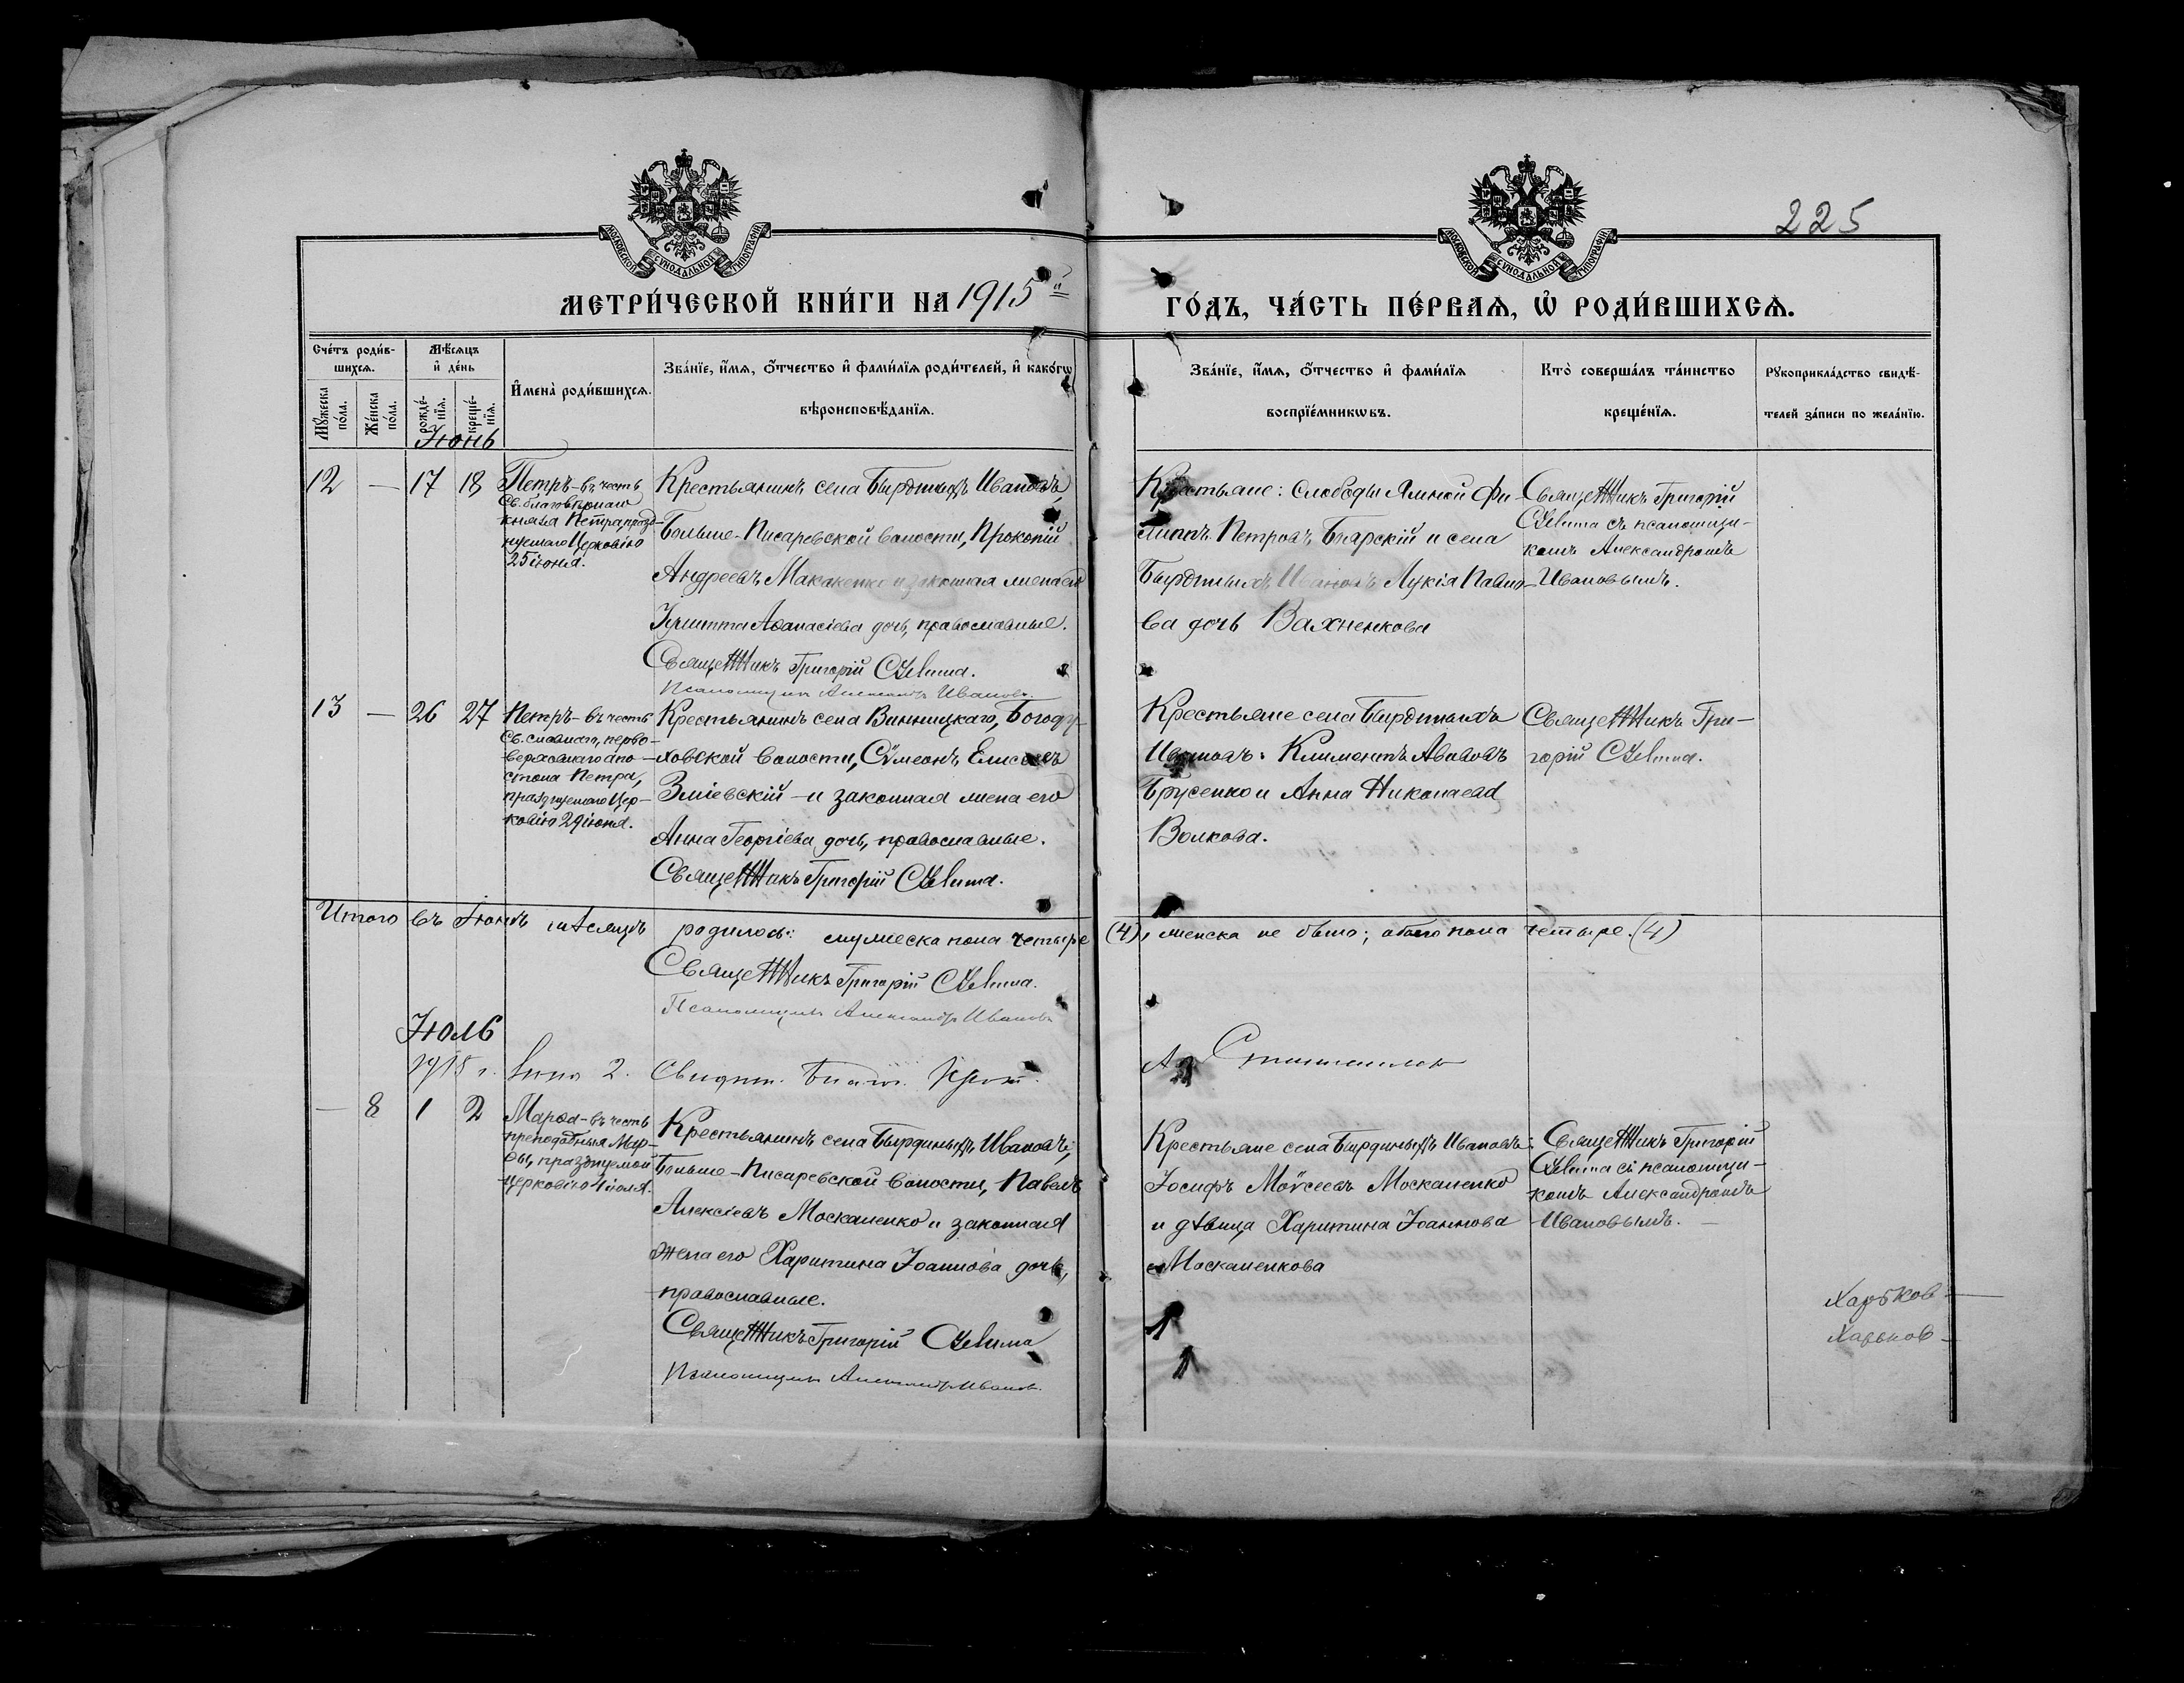 225
МОСКОВСКОЙ СУНОДАЛЬНОЙ ТИПОГРАФІИ
МОСКОВСКОЙ СУНОДАЛЬНОЙ ТИПОГРАФІИ
МЕТРИ́ЧЕСКОЙ КНИ́ГИ НА 1915й
ГО́ДЪ, ЧА́СТЬ ПЕ́РВАѦ, Ѡ РОДИ́ВШИХСѦ.
Сче́тъ роди́в-
шихсѧ.
Мꙋ́жеска по́ла.
Же́нска по́ла.
Мѣ́сѧцъ
и҆ де́нь
рожде́-
нїѧ.
креще́-
нїѧ.
И҆мена̀ роди́вшихсѧ.
Зва́нїе, и҆́мѧ, ѻ҆́тчество и҆ фами́лїѧ роди́телей, и҆ како́гѡ
вѣроисповѣ́данїѧ.
Зва́нїе, и҆́мѧ, ѻ҆́тчество и҆ фами́лїѧ
воспрїе́мникѡвъ.
Кто̀ соверша́лъ та́инство
креще́нїѧ.
Рꙋкоприкла́дство свидѣ́-
телей за́писи по жела́нїю.
Іюнь
12 — 17 18
Петръ - въ честь
Св. благовѣрнаго
князя Петра, празд-
нуемаго Церковію
25 іюня.
Крестьянинъ села Бырдиныхъ Ивановъ,
Больше-Писаревской волости, Прокопій
Андреевъ Макаенко и законная жена его
Іулитта Аѳанасіева дочь, православные.
Священникъ Григорій
Псаломщикъ Александръ Ивановъ.
Крестьяне: Слободы Ямной Фи-
липпъ Петровъ Боярскій и села
Бырдиныхъ Ивановъ Лукія Павло-
ва дочь Вахненкова
Священникъ Григорій
съ псаломщи-
комъ Александромъ
Ивановымъ.
13 — 26 27
Петръ - въ честь
Св. славнаго, перво-
верховнаго апо-
стола Петра,
празднуемаго Цер-
ковію 29 іюня.
Крестьянинъ села Винницкаго, Богоду-
ховской волости, Сѵмеонъ Елисеевъ
Зміевскій - и законная жена его
Анна Георгіева дочь, православные.
Священникъ Григорій
Крестьяне села Бырдиныхъ
Ивановъ: Климентъ Аввавовъ
Брусенко и Анна Николаева
Волкова.
Священникъ Гри-
горій
Итого въ Іюнѣ мѣсяцѣ родилось: мужеска пола четыре (4), женска не было; обоего пола четыре. (4)
Священникъ Григорій
Псаломщикъ Александръ Ивановъ
Іюль
1915 г. 2. Свидѣт.
— 8 1 2
Марѳа - въ честь
преподобныя Мар-
ѳы, празднуемой
церковію 4 іюля.
Крестьянинъ села Бырдиныхъ Ивановъ,
Больше-Писаревской волости, Павелъ
Алексіевъ Москаленко и законная
жена его Харитина Іоаннова дочь,
православные.
Священникъ Григорій
Псаломщикъ Александръ Ивановъ.
Крестьяне села Бырдиныхъ Ивановъ:
Іосифъ Мойсеевъ Москаленко
и дѣвица Харитина Іоаннова
Москаленкова
Священникъ Григорій
съ псаломщи-
комъ Александромъ
Ивановымъ. —
Харьков-
Харьков-